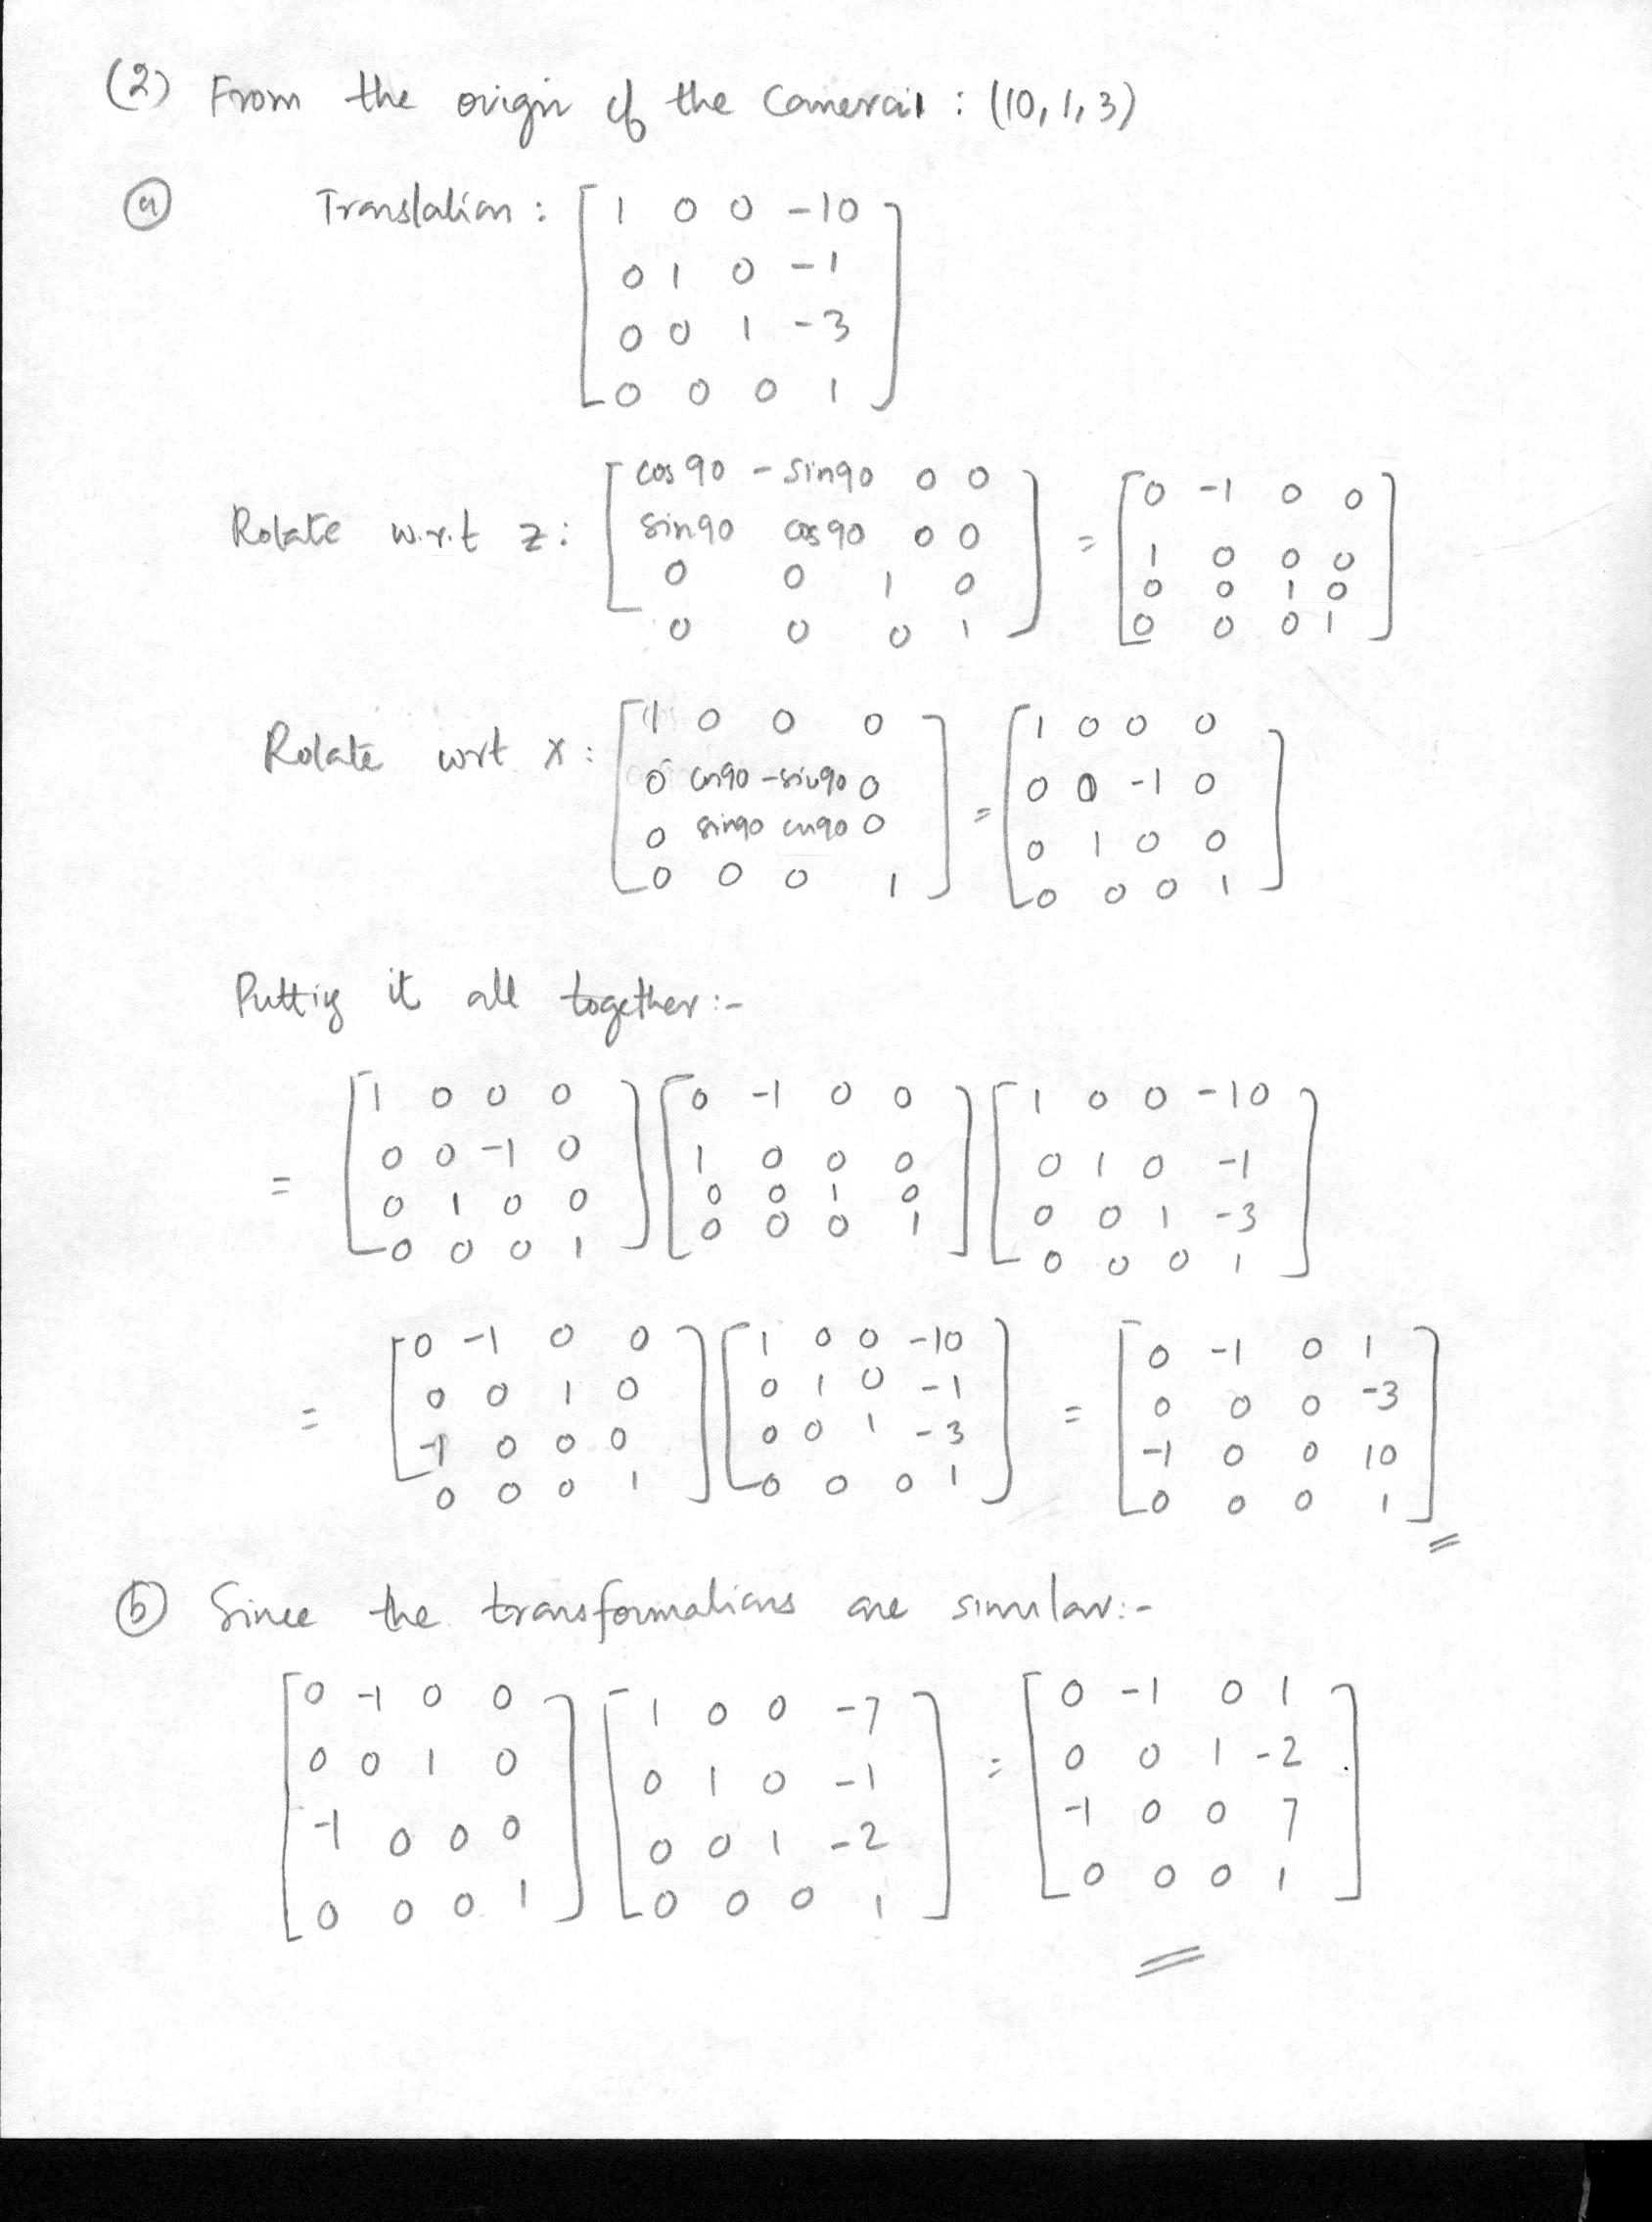 (2) From the origin of the Camera1 : (10, 1, 3)
(a) Translation : [ 1 0 0 -10
0 1 0 -1
0 0 1 -3
0 0 0 1 ]
Rotate w.r.t z: [ cos 90 - sin90 0 0
sin90 cos 90 0 0
0 0 1 0
0 0 0 1 ] = [ 0 -1 0 0
1 0 0 0
0 0 1 0
0 0 0 1 ]
Rotate wrt x: [ 1 0 0 0
0 cos90 -sin90 0
0 sin90 cos90 0
0 0 0 1 ] = [ 1 0 0 0
0 0 -1 0
0 1 0 0
0 0 0 1 ]
Putting it all together :-
= [ 1 0 0 0
0 0 -1 0
0 1 0 0
0 0 0 1 ] [ 0 -1 0 0
1 0 0 0
0 0 1 0
0 0 0 1 ] [ 1 0 0 -10
0 1 0 -1
0 0 1 -3
0 0 0 1 ]
= [ 0 -1 0 0
0 0 1 0
-1 0 0 0
0 0 0 1 ] [ 1 0 0 -10
0 1 0 -1
0 0 1 -3
0 0 0 1 ] = [ 0 -1 0 1
0 0 0 -3
-1 0 0 10
0 0 0 1 ]
(b) Since the transformations are similar :-
[ 0 -1 0 0
0 0 1 0
-1 0 0 0
0 0 0 1 ] [ 1 0 0 -7
0 1 0 -1
0 0 1 -2
0 0 0 1 ] = [ 0 -1 0 1
0 0 1 -2
-1 0 0 7
0 0 0 1 ]